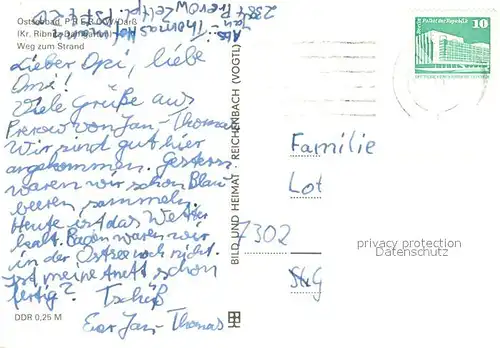 Ostseebad PREROW/Darß
(Kr. Ribnitz-Damgarten)
Weg zum Strand
Abs.:
Jan-Thomas
2383 Prerow
Lieber Opi, liebe
Omi!
Viele Grüße aus
Prerow von Jan-Thomas
Wir sind gut hier
angekommen. Gestern
waren wir schon Blau
beeren sammeln.
Heute ist das Wetter
kalt. Baden waren wir
in der Ostsee noch nicht.
Ist meine Anett schon
fertig?
Tschüß
Euer Jan-Thomas
DDR 0,25 M
BILD UND HEIMAT · REICHENBACH (VOGTL)
Berlin, Palast der Republik
10
Familie
Lot
7302
privacy protection
Datenschutz